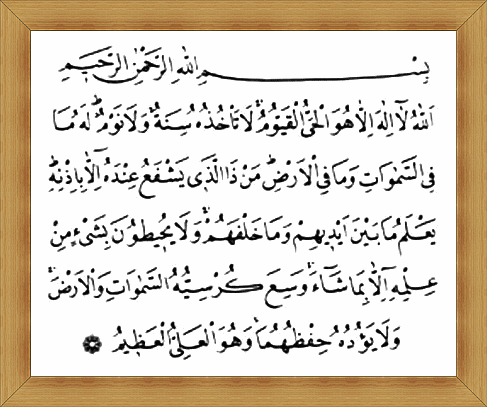 بِسْمِ اللهِ الرَّحْمٰنِ الرَّحٖيمِ
اَللهُ لَٓا اِلٰهَ اِلَّا هُوَ اَلْحَىُّ الْقَيُّومُۚ لَا تَأْخُذُهُ سِنَةٌ وَلَا نَوْمٌؕ لَهُ مَا
فِى السَّمٰوَاتِ وَمَا فِى الْاَرْضِؕ مَنْ ذَا الَّذٖى يَشْفَعُ عِنْدَهُٓ اِلَّا بِاِذْنِهٖؕ
يَعْلَمُ مَا بَيْنَ اَيْدٖيهِمْ وَمَا خَلْفَهُمْۚ وَلَا يُحٖيطُونَ بِشَىْءٍ مِنْ
عِلْمِهٖٓ اِلَّا بِمَا شَٓاءَۚ وَسِعَ كُرْسِيُّهُ السَّمٰوَاتِ وَالْاَرْضَۚ
وَلَا يَؤُ۫دُهُ حِفْظُهُمَاۚ وَهُوَ الْعَلِىُّ الْعَظٖيمُ